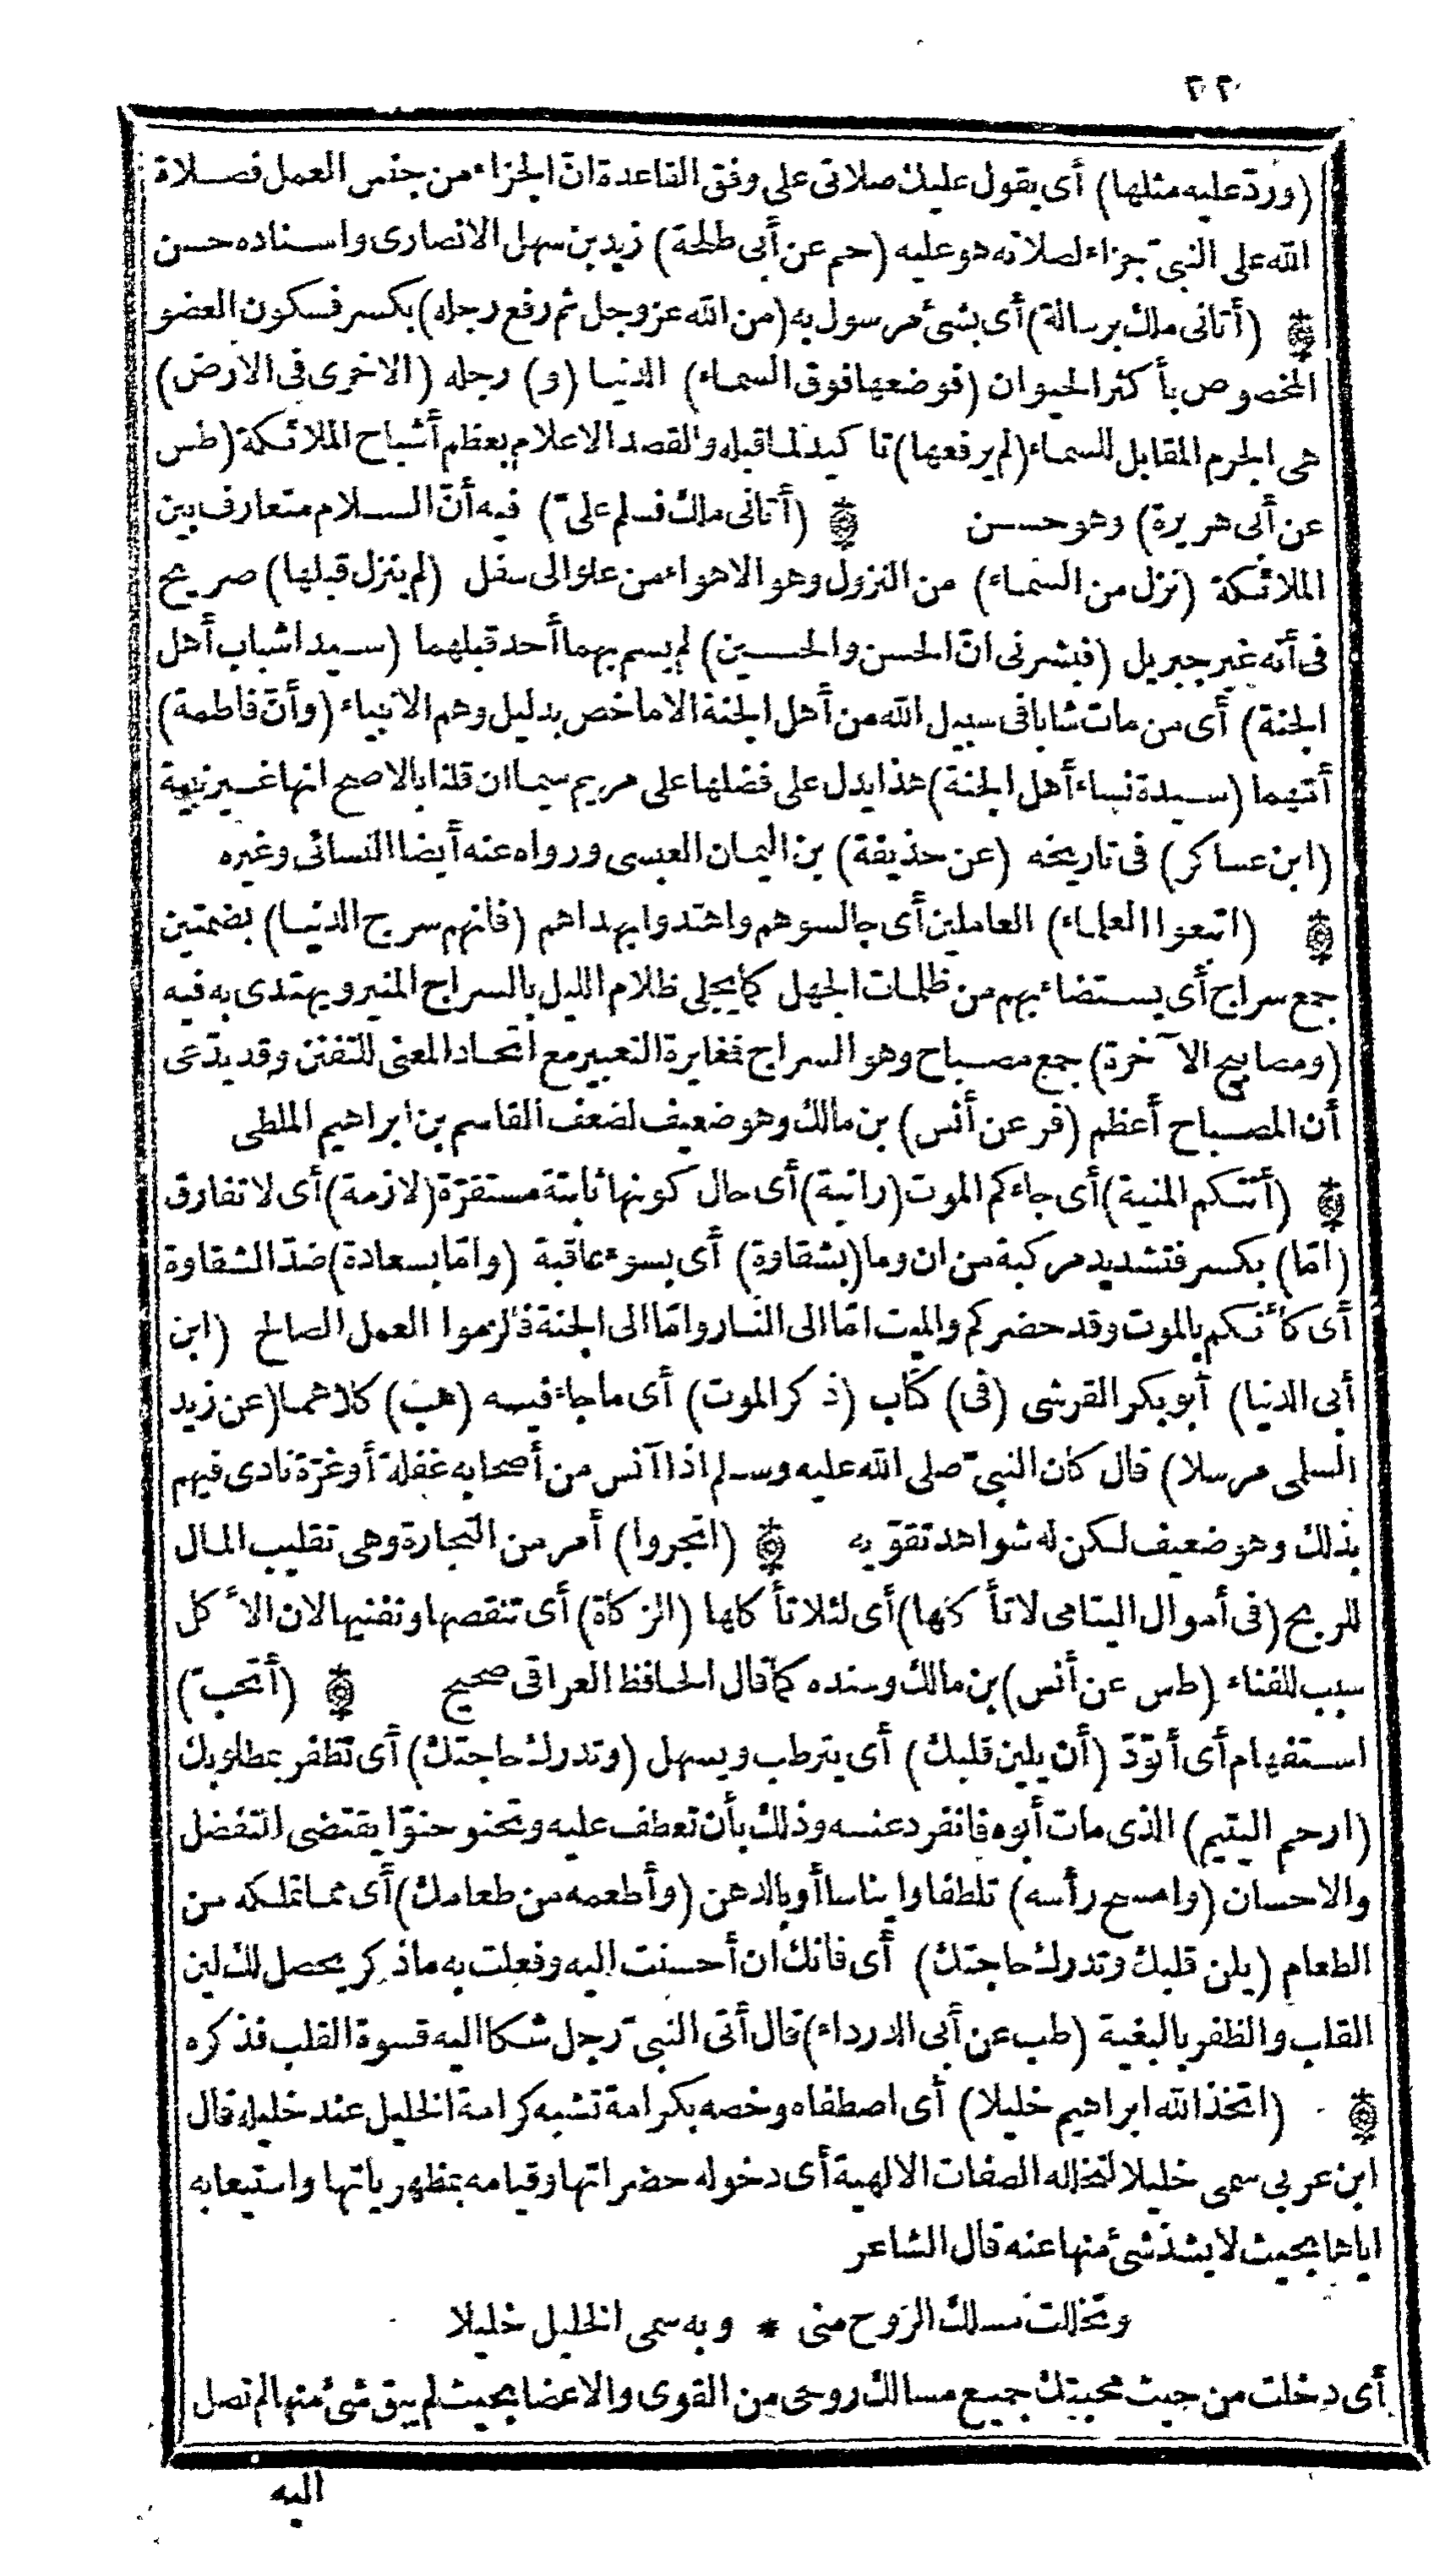 ٢٢
(وردّ عليه مثلها) أى يقول عليك صلاتى على وفق القاعدة انّ الجزاء من جنس العمل فصلاة
الله على النبىّ جزاء لصلاته هو عليه (حم عن أبى طلحة) زيد بن سهل الانصارى واسناده حسن
(أتانى ملك برسالة) أى بشئ مرسول به (من الله عز وجل ثم رفع رجله) بكسر فسكون العضو
المخصوص بأكثر الحيوان (فوضعها فوق السماء) الدنيا (و) رجله (الاخرى فى الارض)
هى الجرم المقابل للسماء (لم يرفعها) تاكيد لما قبله والقصد الاعلام بعظم أشباح الملائكة (طس
عن أبى هريرة) وهو حسن (أتانى ملك فسلم علىّ) فيه أنّ السلام متعارف بين
الملائكة (نزل من السماء) من النزول وهو الاهواء من علو الى سفل (لم ينزل قبلها) صريح
فى أنه غير جبريل (فبشرنى انّ الحسن والحسين) لم يسم بهما أحد قبلهما (سيدا شباب أهل
الجنة) أى من مات شابا فى سبيل الله من أهل الجنة الا ما خص بدليل وهم الانبياء (وأنّ فاطمة)
أمّهما (سيدة نساء أهل الجنة) هذا يدل على فضلها على مريم سيما ان قلنا بالاصح انها غير نبية
(ابن عساكر) فى تاريخه (عن حذيفة) بن اليمان العبسى ورواه عنه أيضا النسائى وغيره
(اتبعوا العلماء) العاملين أى جالسوهم واهتدوا بهداهم (فانهم سرج الدنيا) بضمتين
جمع سراج أى يستضاء بهم من ظلمات الجهل كما يجلى ظلام الليل بالسراج المنير ويهتدى به فيه
(ومصابيح الآخرة) جمع مصباح وهو السراج فمغايرة التعبير مع اتحاد المعنى للتفنن وقد يدّعى
أن المصباح أعظم (فر عن أنس) بن مالك وهو ضعيف لضعف القاسم بن ابراهيم الملطى
(أتتكم المنية) أى جاءكم الموت (راتبة) أى حال كونها ثابتة مستقرّة (لازمة) أى لا تفارق
(امّا) بكسر فتشديد مركبة من ان وما (بشقاوة) أى بسوء عاقبة (وامّا بسعادة) ضدّ الشقاوة
أى كأنكم بالموت وقد حضركم والميت امّا الى النار وامّا الى الجنة فالزموا العمل الصالح (ابن
أبى الدنيا) أبو بكر القرشى (فى) كتاب (ذكر الموت) أى ما جاء فيه (هب) كلاهما (عن زيد
السلمى مرسلا) قال كان النبىّ صلى الله عليه وسلم اذا آنس من أصحابه غفلة أو غرّة نادى فيهم
بذلك وهو ضعيف لكن له شواهد تقوّيه (اتّجروا) أمر من التجارة وهى تقليب المال
للربح (فى أموال اليتامى لا تأكلها) أى لئلا تأكلها (الزكاة) أى تنقصها وتفنيها لان الأكل
سبب للفناء (طس عن أنس) بن مالك وسنده كما قال الحافظ العراقى صحيح (أتحبّ)
استفهام أى أتودّ (أن يلين قلبك) أى يترطب ويسهل (وتدرك حاجتك) أى تظفر بمطلوبك
(ارحم اليتيم) الذى مات أبوه فانفرد عنه وذلك بأن تعطف عليه وتحنو حنوّا يقتضى التفضل
والاحسان (وامسح رأسه) تلطفا وايناسا أو بالدهن (وأطعمه من طعامك) أى مما تملكه من
الطعام (يلن قلبك وتدرك حاجتك) أى فانك ان أحسنت اليه وفعلت به ما ذكر يحصل لك لين
القلب والظفر بالبغية (طب عن أبى الدرداء) قال أتى النبىّ رجل شكا اليه قسوة القلب فذكره
(اتخذ الله ابراهيم خليلا) أى اصطفاه وخصه بكرامة تشبه كرامة الخليل عند خليله قال
ابن عربى سمى خليلا لتخلله الصفات الالهية أى دخوله حضراتها وقيامه بمظهرياتها واستيعابه
اياها بحيث لا يشذ شئ منها عنه قال الشاعر
وتخللت مسلك الروح منى * وبه سمى الخليل خليلا
أى دخلت من حيث محبتك جميع مسالك روحى من القوى والاعضا بحيث لم يبق شئ منها لم تصل
اليه